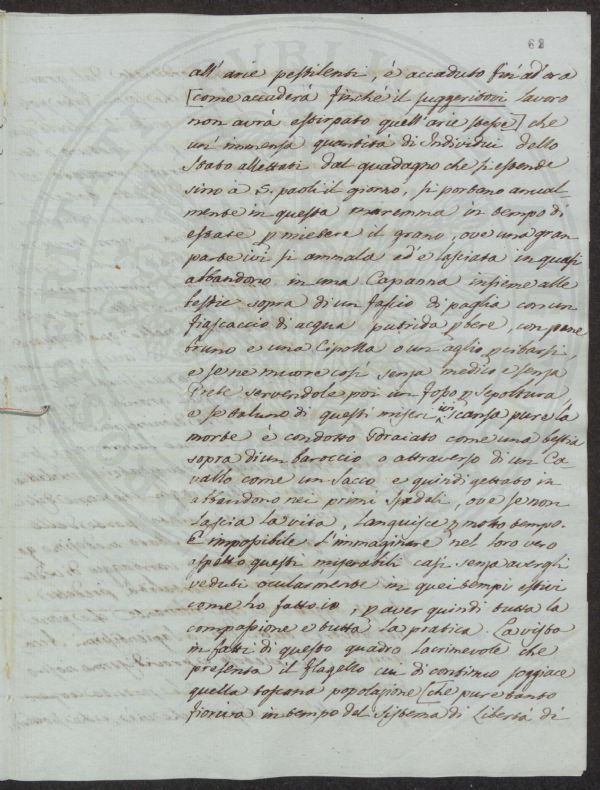 68
all' arie pestilenti, è accaduto fin ad ora
[come accaderà finché il suggeritovi lavoro
non avrà estirpato quell' arie stesse] che
un' immensa quantità di Individui dello
Stato allettati dal guadagno che si estende
sino a 5. paoli il giorno, si portano annual-
mente in questa maremma in tempo di
estate p mietere il grano, ove una gran
parte ivi si ammala ed è lasciata in quasi
abbandono in una Capanna insieme alle
bestie sopra di un fascio di paglia con un
fiascaccio di acqua putrida p bere, con pane
bruno e una Cipolla o un aglio p cibarsi,
e se ne muore così senza medico e senza
Prete servendole poi un fosso p sepoltura,
e se taluno di questi miseri ivi scansa pure la
morte è condotto sdraiato come una bestia
sopra di un baroccio o attraverso di un Ca-
vallo come un sacco e quindi gettato in
abbandono nei primi Spedali, ove se non
lascia la vita, languisce p molto tempo.
È impossibile l' immaginare nel loro vero
aspetto questi miserabili casi senza avergli
veduti ocularmente in quei tempi estivi
come ho fatto io, p aver quindi tutta la
compassione e tutta la pratica. La vista
in fatti di questo quadro lacrimevole che
presenta il flagello cui di continuo soggiace
quella toscana popolazione [che pure tanto
fioriva in tempo del Sistema di Libertà di